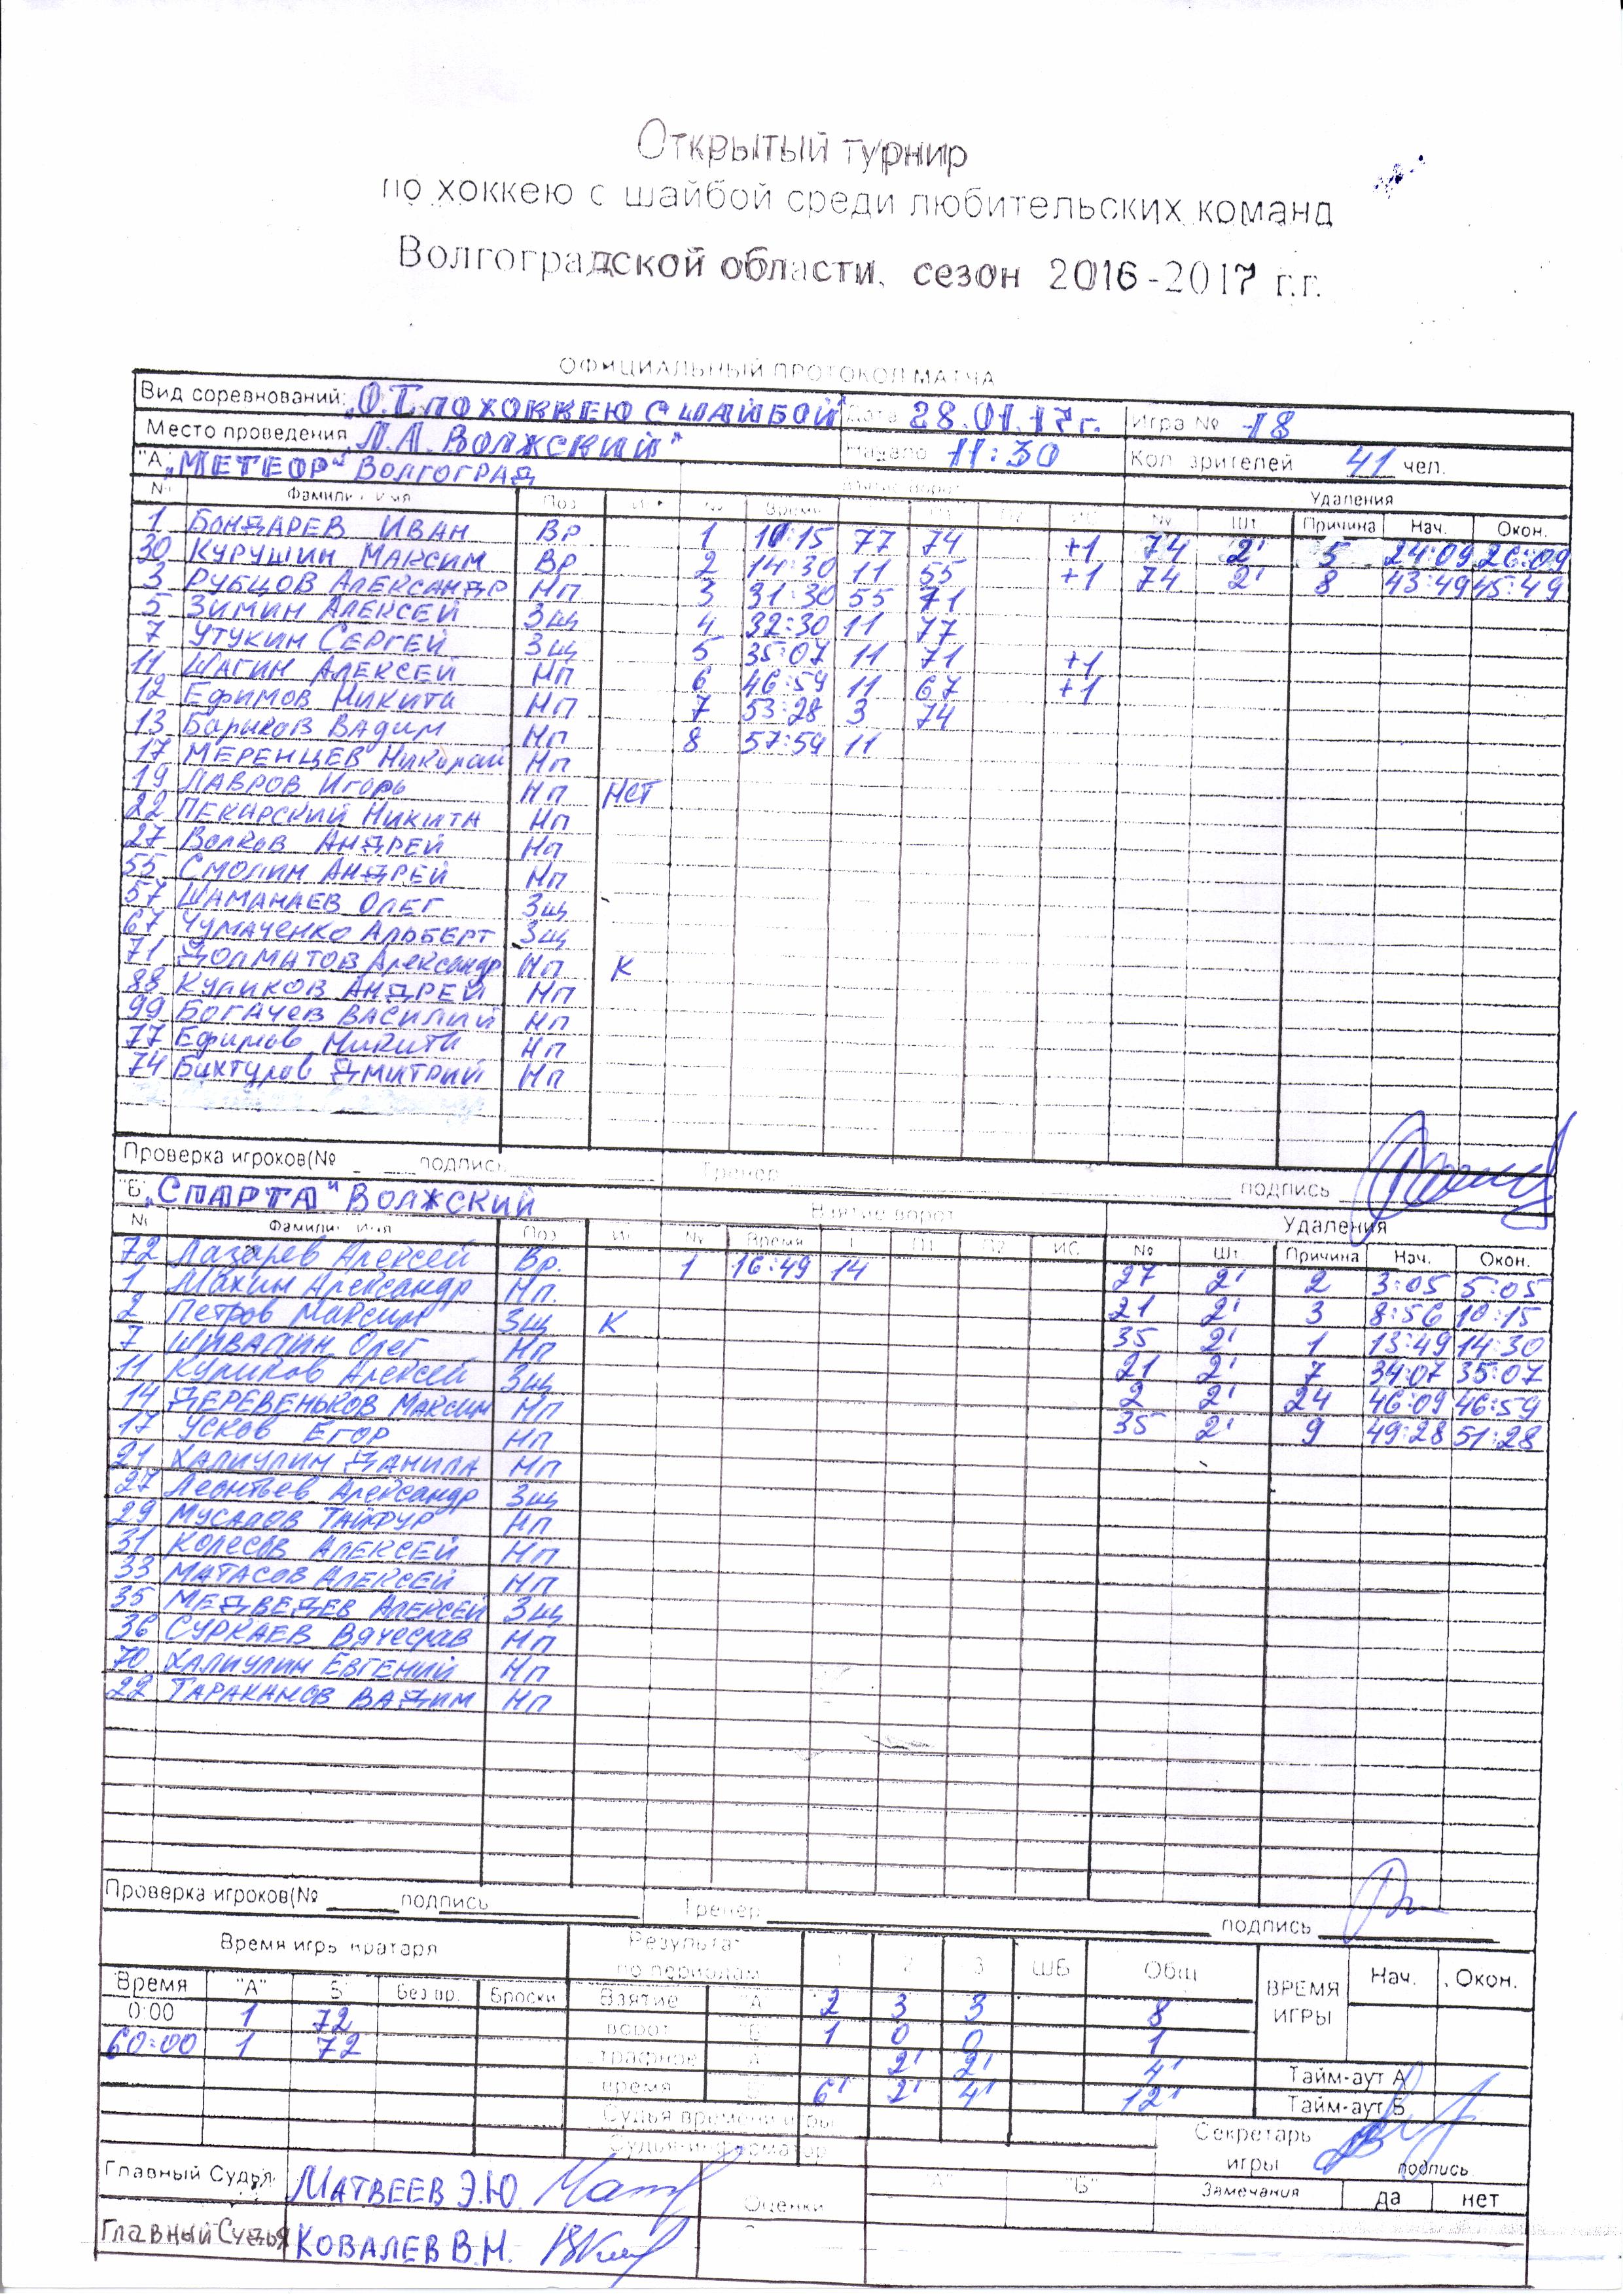 Открытый турнир
по хоккею с шайбой среди любительских команд
Волгоградской области, сезон 2016-2017 г.г.
ОФИЦИАЛЬНЫЙ ПРОТОКОЛ МАТЧА
Вид соревнований: "О.Т. ПО ХОККЕЮ С ШАЙБОЙ" Дата 28.01.17г. Игра № 18
Место проведения Л.А. ВОЛЖСКИЙ" Начало 11:30 Кол. зрителей 41 чел.
"А" "МЕТЕОР" ВОЛГОГРАД Взятие ворот Удаления
№ Фамилия Имя Поз № Время Г П1 П2 ИС № Шт. Причина Нач. Окон.
1 БОНДАРЕВ ИВАН Вр 1 10:15 77 74 +1 74 2' 5 24:09 26:09
30 КУРУШИН МАКСИМ Вр 2 14:30 11 55 +1 74 2' 8 43:49 45:49
3 РУБЦОВ АЛЕКСАНДР Нп 3 31:30 55 71
5 ЗИМИН АЛЕКСЕЙ Зщ 4 32:30 11 77
7 УТУКИН СЕРГЕЙ Зщ 5 35:07 11 71 +1
11 ШАГИН АЛЕКСЕЙ Нп 6 46:59 11 67 +1
12 ЕФИМОВ Никита Нп 7 53:28 3 74
13 Бариков Вадим Нп 8 57:59 11
17 МЕРЕНЦЕВ Николай Нп
19 ЛАВРОВ Игорь Нп НСТ
22 ПЕКАРСКИЙ НИКИТА Нп
27 Волков АНДРЕЙ Нп
55 СМОЛИН АНДРЕЙ Нп
57 ШАМАНАЕВ ОЛЕГ Зщ
67 ЧУМАЧЕНКО АЛЬБЕРТ Зщ
71 ДОЛМАТОВ Александр Нп К
88 КУЛИКОВ АНДРЕЙ Нп
99 БОГАЧЕВ ВАСИЛИЙ Нп
77 Ефимов Никита Нп
74 Бахтуров ДМИТРИЙ Нп
Проверка игроков(№ подпись Тренер подпись
"Б" "СПАРТА" ВОЛЖСКИЙ Взятие ворот Удаления
№ Фамилия Имя Поз Иг № Время Г П1 П2 ИС № Шт. Причина Нач. Окон.
72 Лазарев Алексей Вр. 1 16:49 14 27 2' 2 3:05 5:05
1 Махин Александр Нп 21 2' 3 8:56 10:15
2 Петров Максим Зщ К 35 2' 1 13:49 14:30
7 Олег Нп 21 2' 7 34:07 35:07
11 Куликов Алексей Зщ 2 2' 24 46:09 46:59
14 ДЕРЕВЕНЬКОВ Максим Нп 35 2' 9 49:28 51:28
17 УСКОВ ЕГОР Нп
21 ХАЛИУЛИН ДАНИЛА Нп
27 Леонтьев Александр Зщ
29 МУСАЛОВ ТАЙФУР Нп
31 КОЛЕСОВ АЛЕКСЕЙ Нп
33 МАТАСОВ АЛЕКСЕЙ Нп
35 МЕДВЕДЕВ АЛЕКСЕЙ Зщ
36 СУРКАЕВ Вячеслав Нп
70 ХАЛИУЛИН ЕВГЕНИЙ Нп
22 ТАРАКАНОВ ВАДИМ Нп
Проверка игроков(№ подпись Тренер подпись
Время игры вратаря Результат по периодам 1 2 3 ШБ Общ ВРЕМЯ ИГРЫ Нач. Окон.
Время "А" Б Без вр. Броски Взятие "А" 2 3 3 8
0:00 1 72 ворот "Б" 1 0 0 1
60:00 1 72 Штрафное А 2' 2' 4' Тайм-аут А
время Б 6' 2' 4' 12' Тайм-аут Б
Судья времени игры Секретарь
Судья-информатор игры подпись
Главный Судья МАТВЕЕВ Э.Ю. Оценки "А" "Б" Замечания да нет
Главный Судья КОВАЛЕВ В.Н.